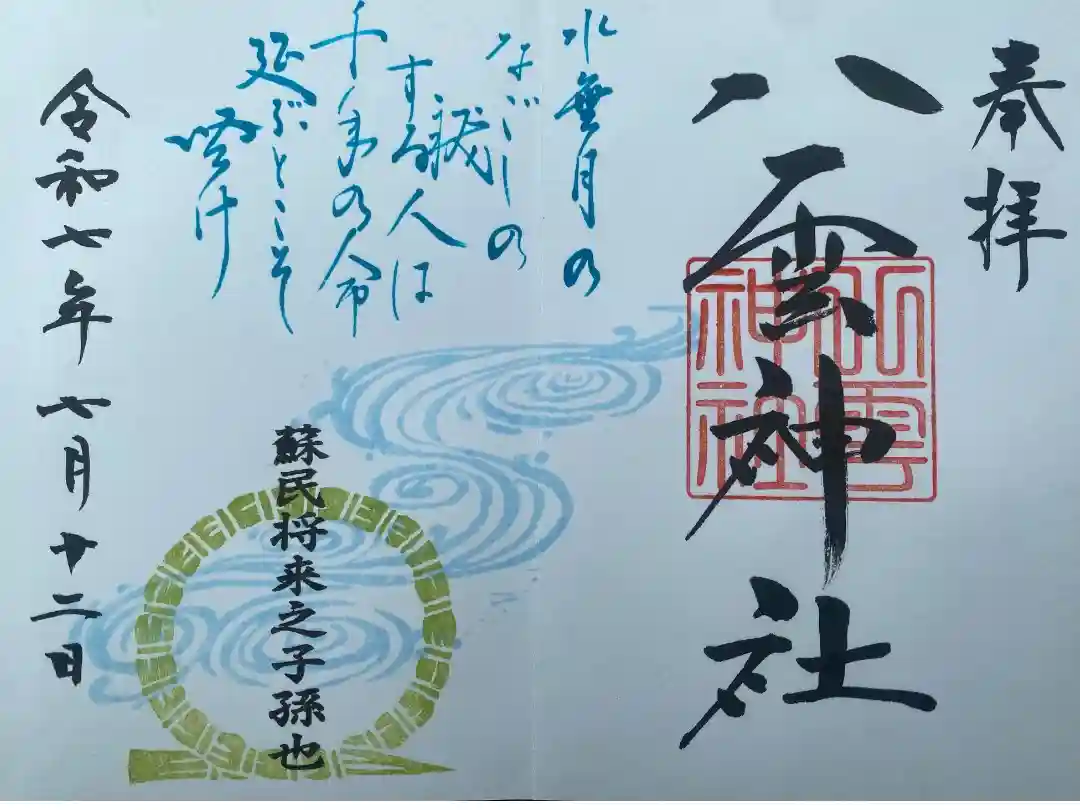 奉拝
八雲神社
八雲
神社
水無月の
なごしの
祓
する人は
千年の命
延ぶとこそ
蘇民将来之子孫也
令和七年七月十二日